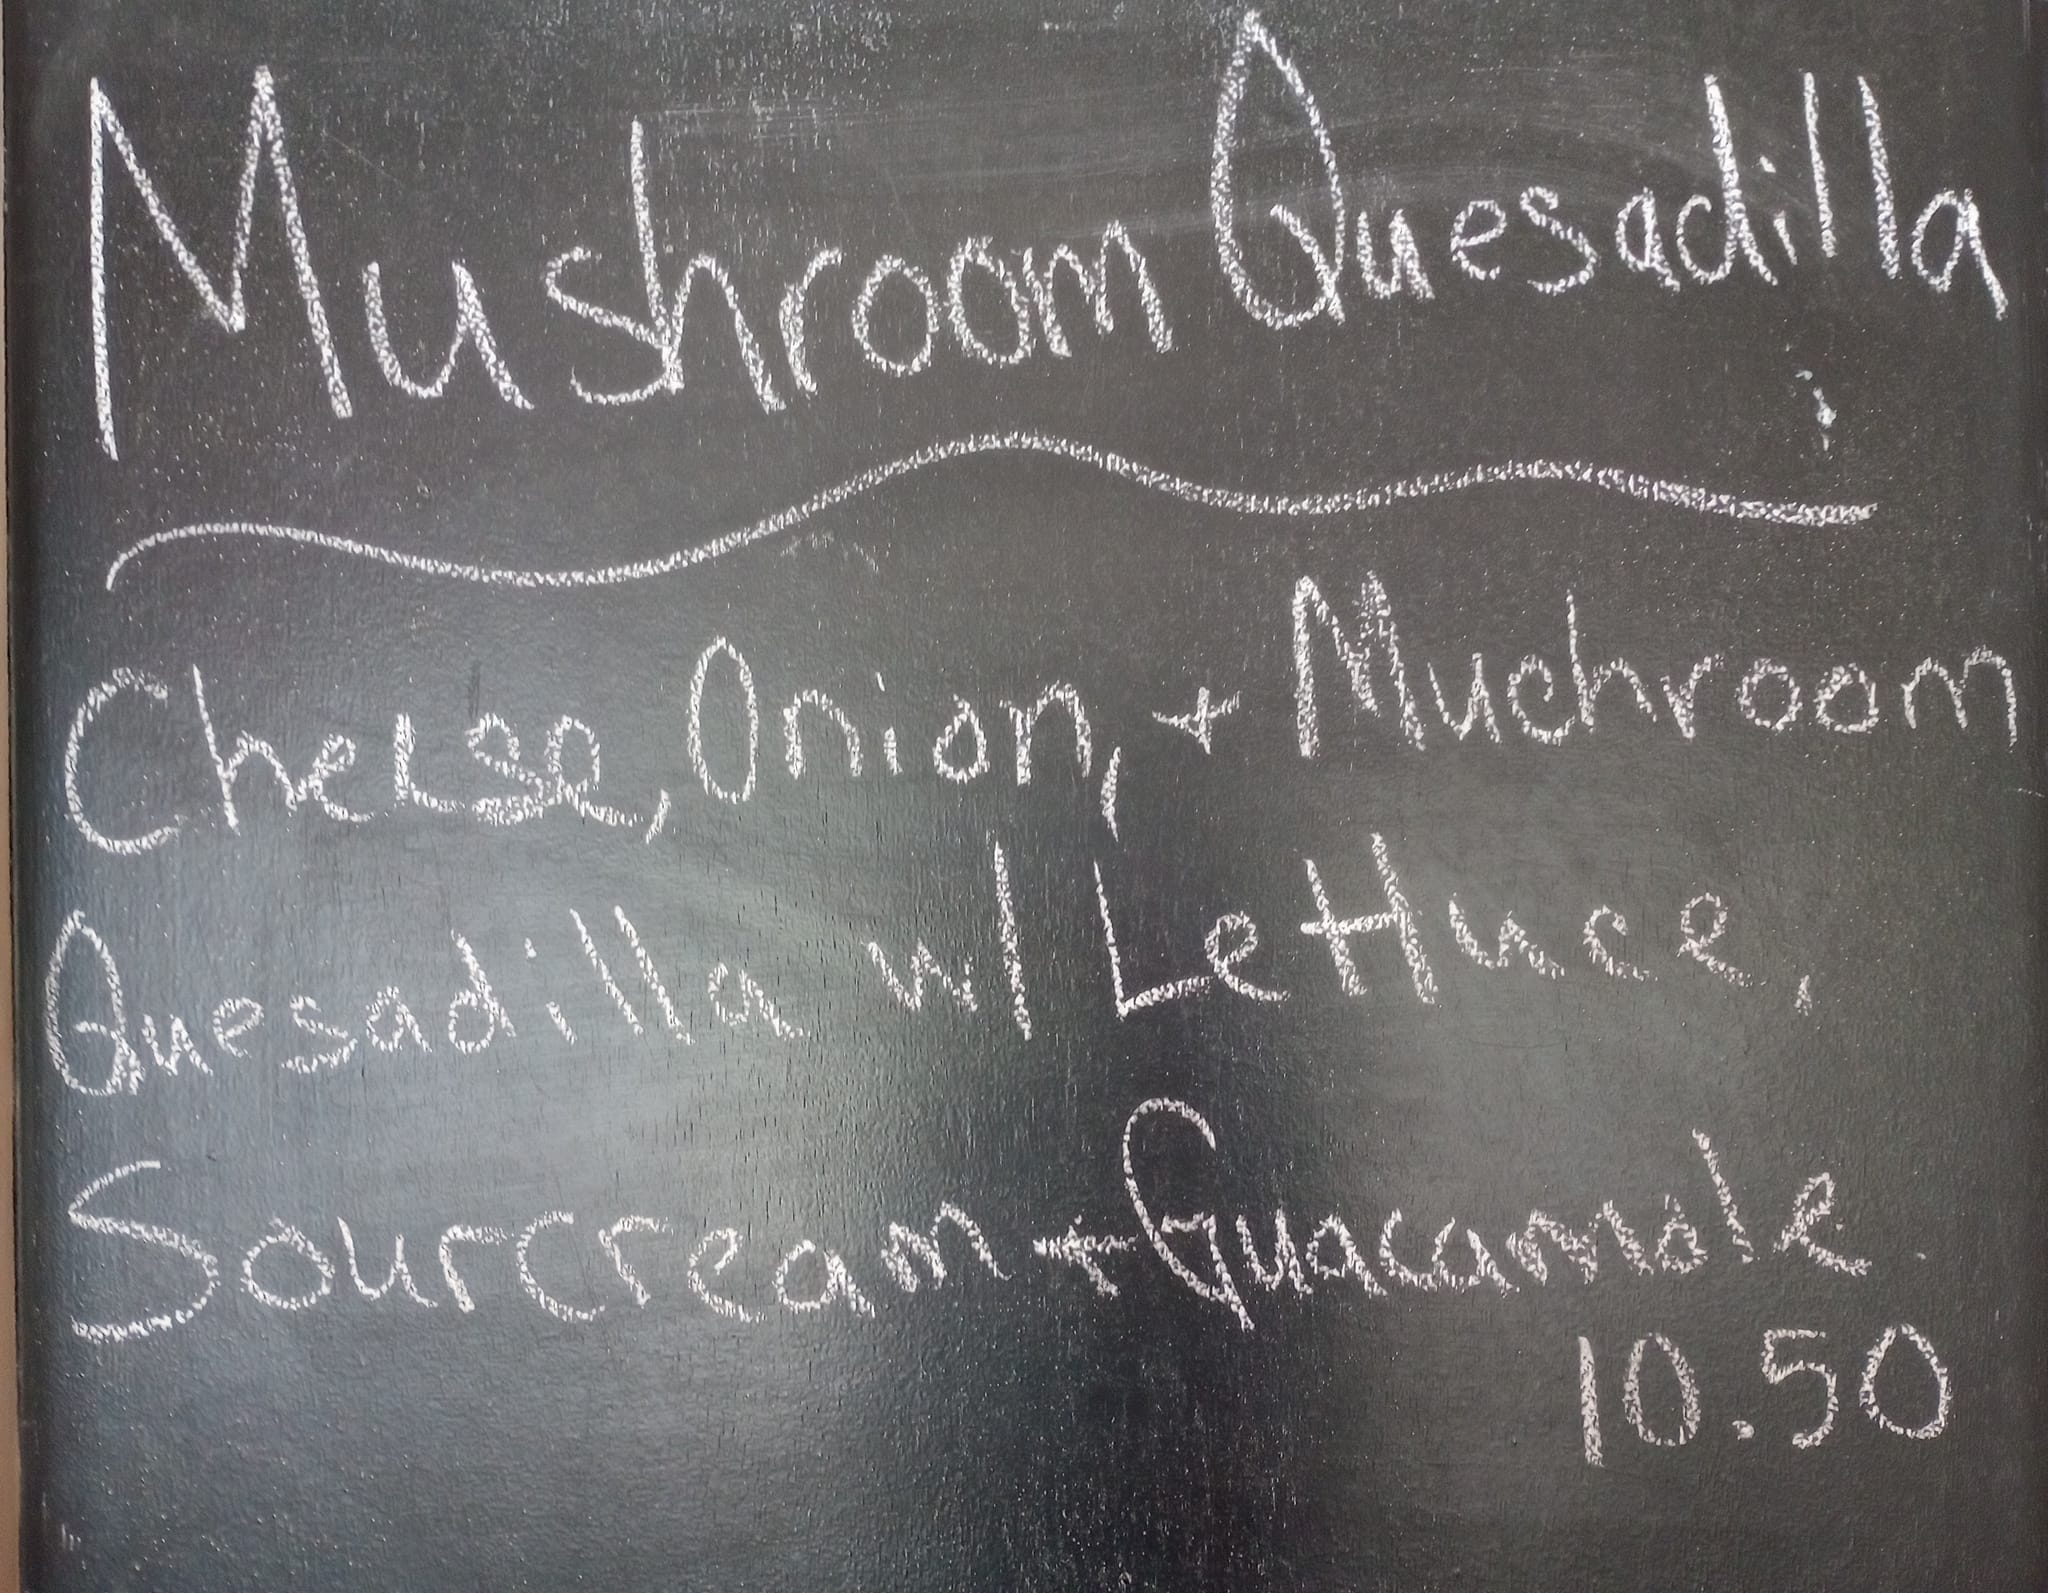 Mushroom Quesadilla
Cheese, Onion, + Muchroom
Quesadilla w/ Lettuce,
Sourcream + Guacamole.
10.50